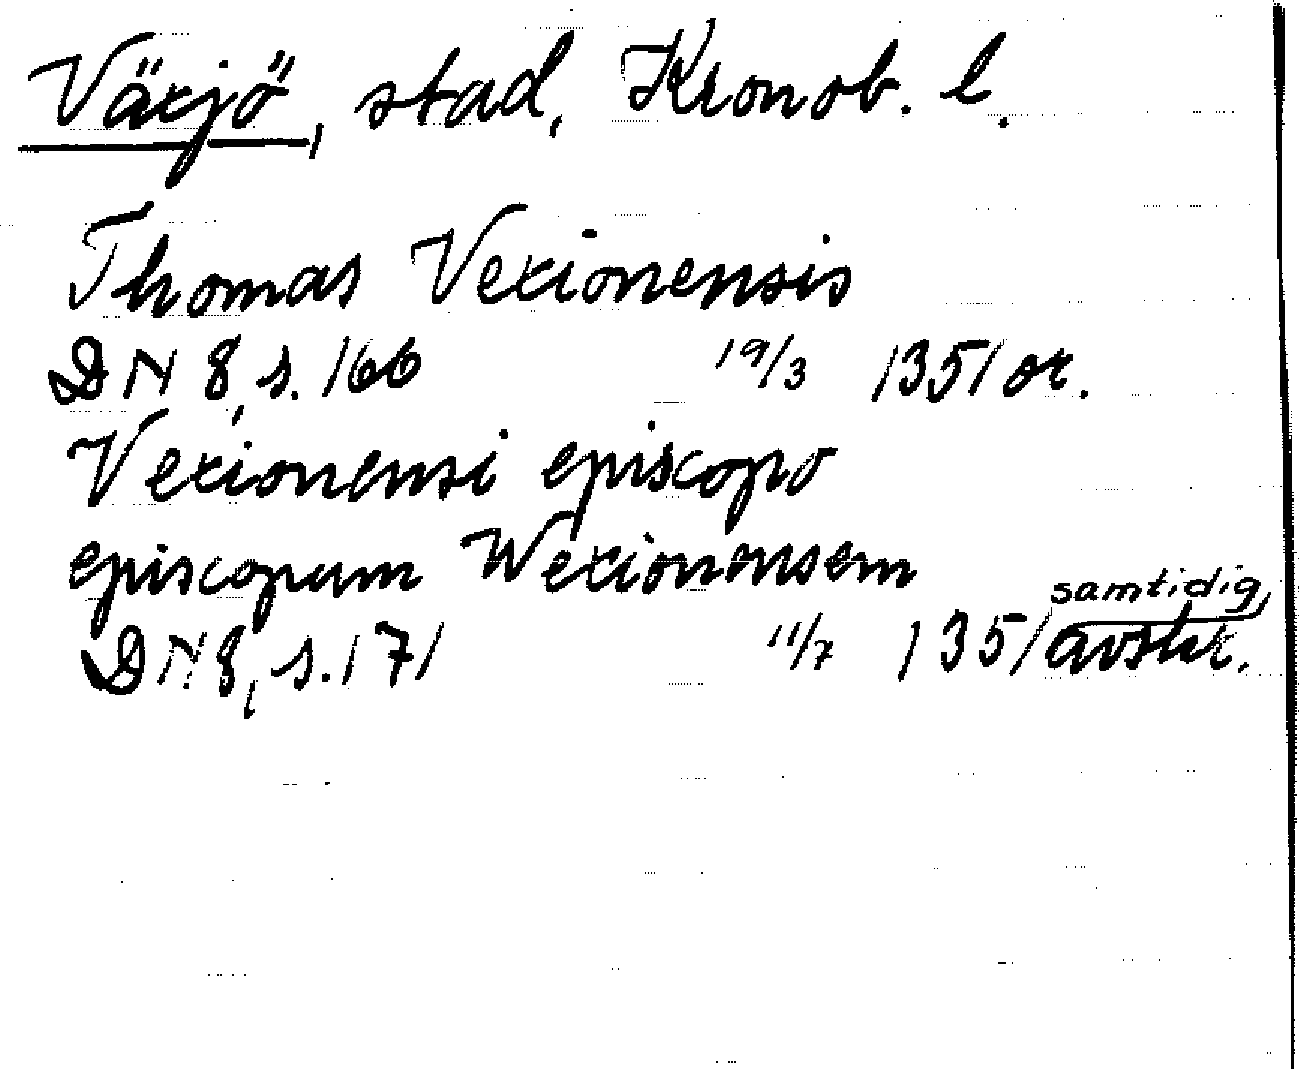 Växjö, stad, Kronob. l.
Thomas Vexionensis
DN 8, s. 166 19/3 1351 or.
Vexionensi episcopo
episcopum Wexionensem
samtidig
DN 8, s. 171 11/7 1351 avskr.